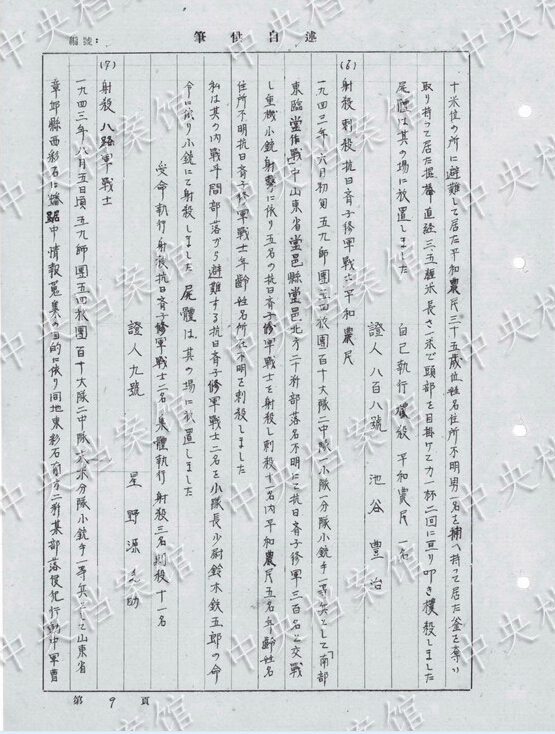 述自供筆
編號:
十米位の所に避難して居た平和農民三十五歳位姓名住所不明男一名を捕へ持って居た釜を奪い
取り持って居た棍棒直経三.五糎米長さ一米で頭部を目掛けて力一杯二回に亘り叩き撲殺しました
屍體は其の場に放置しました
自己執行 撲殺 平和農民 一名
證人 八百八號 池谷豊治
(6) 射殺刺殺抗日赤子修軍戦士平和農民
一九四三年六月初旬五九師團五四旅團百十大隊二中隊一小隊一分隊小銃手一等兵として「南部
東臨堂作戦」中山東省堂邑縣堂邑北方二十粁部落名不明にて抗日斉子修軍三百名と交戦
し重機小銃射撃に依り五名の抗日斉子修軍戦士を射殺し刺殺十名内平和農民五名年齢姓名
住所不明抗日斉子修軍戦士年齢姓名所在不明を刺殺しました
私は其の内戦斗間部落から避難する抗日斉子修軍戦士二名を小隊長少尉鈴木鉄五郎の命
令に依り小銃にて射殺しました 屍體は其の場に放置しました
受命執行 射殺抗日斉子修軍戦士二名 集體執行 射殺三名 刺殺十一名
證人九號 星野源之助
(7) 射殺 八路軍戦士
一九四三年八月五日頃五九師團五四旅團百十大隊二中隊 分隊小銃手一等兵として山東省
章邱縣西彩石に蟠踞中情報蒐集の目的に依り同地東彩石南方二粁某部落侵犯行動中軍曹
第 9 頁
中央档案馆